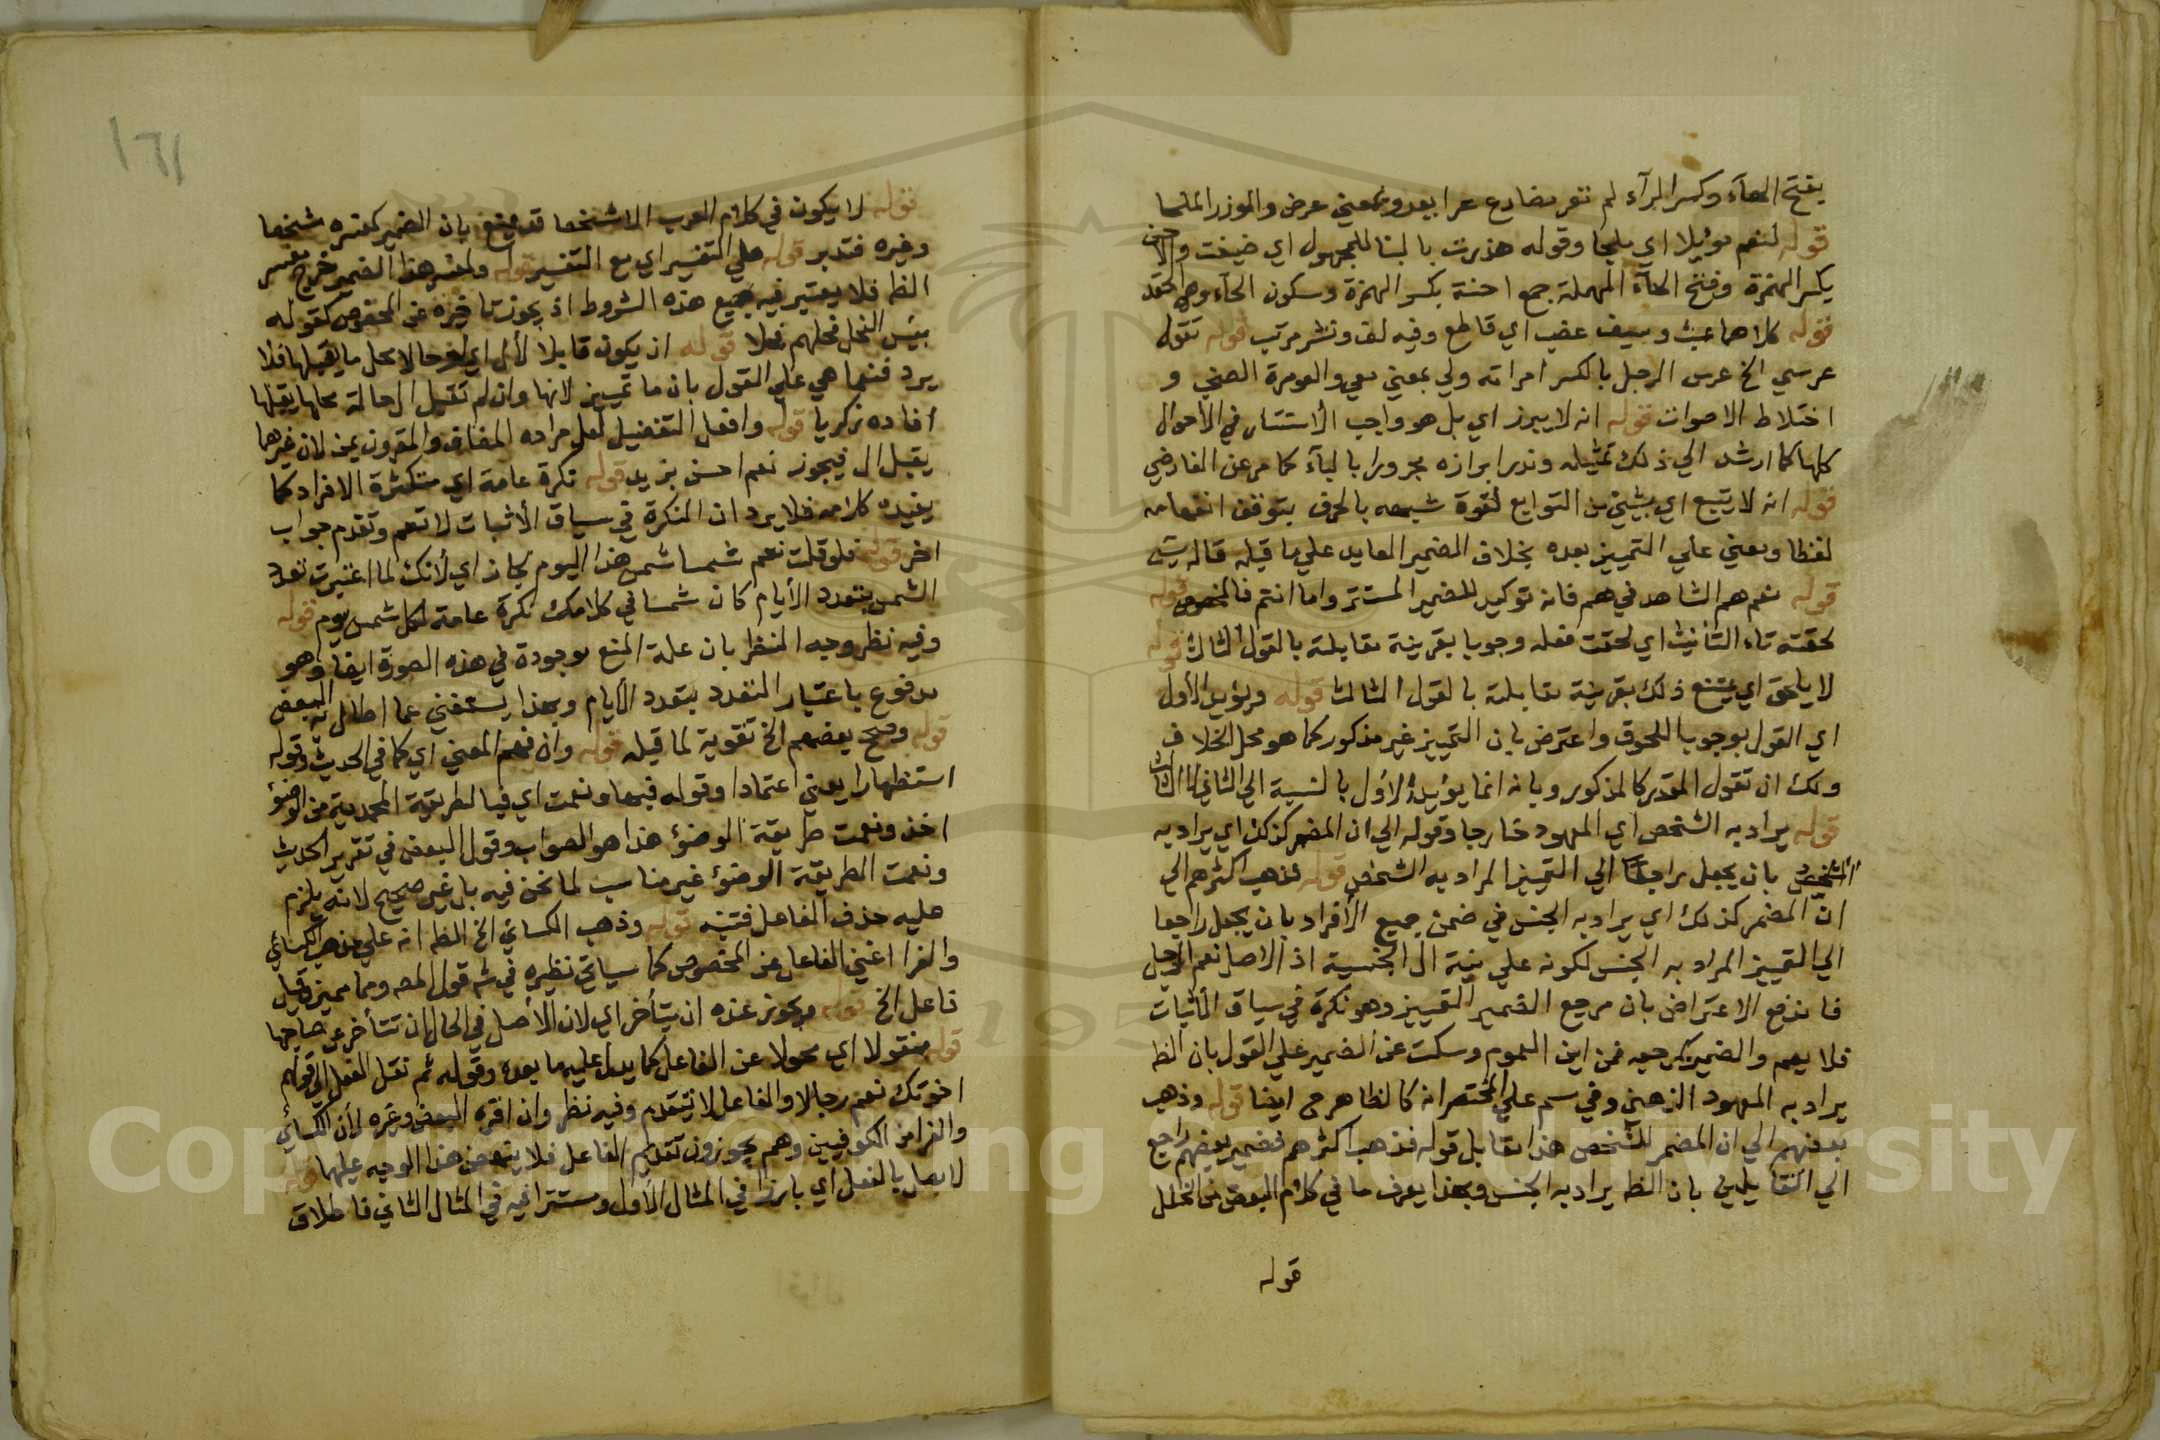 بفتح الهاء وكسر الراء لم تعر مضارع عرا يعرو بمعني عرض والوزر الملجا
قوله لنعم موئلا اي ملجا وقوله حذرت بالبنا للمجهول اي خيفت والاحن
بكسر الهمزة وفتح الحاء المهملة جمع احنة بكسر الهمزة وسكون الحاء وهي الحقد
قوله كلاهما غيث وسيف عضب اي قاطع وفيه لف ونشر مرتب قوله تقول
عرسي الخ عرس الرجل بالكسر امراته ولي بمعني معي والعومرة الصخب و
اختلاط الاصوات قوله انه لا يبرز اي بل هو واجب الاستتار في الاحوال
كلها كما ارشد الي ذلك تمثيله وندر ابرازه مجرورا بالباء كما مر عن الفارضي
قوله انه لا يتبع اي بشيئ من التوابع لقوة شبهه بالحرف بتوقف انفهامه
لفظا ومعني علي التمييز بعده بخلاف الضمير العايد علي ما قبله قاله يس
قوله نعم هم الشاهد في هم فانه توكيد للضمير المستتر واما انتم فالمخصوص قوله
لحقته تاء التأنيث اي لحقت فعله وجوبا بقرينة مقابلته بالقول الثالث قوله
لا يلحق اي يمتنع ذلك بقرينة مقابلته بالقول الثالث قوله ويؤيد الاول
اي القول بوجوب اللحوق واعترض بان التمييز غير مذكور كما هو محل الخلاف
ولك ان تقول المقدر كالمذكور وبانه انما يؤيد الاول بالنسبة الي الثاني لا الثالث
قوله يراد به الشخص اي المعهود خارجا وقوله الي ان المضمر كذلك اي يراد به
الشخص بان يجعل راجعا الي التمييز المراد به الشخص قوله فذهب اكثرهم الي
ان المضمر كذلك اي يراد به الجنس في ضمن جميع الافراد بان يجعل راجعا
الي التمييز المراد به الجنس لكونه علي نية ال الجنسية اذ الاصل نعم الرجل
فاندفع الاعتراض بان مرجع الضمير التمييز وهو نكرة في سياق الاثبات
فلا يعم والضمير كمرجعه فمن اين العموم وسكت عن الضمير علي القول بان الظ
يراد به المعهود الذهني وفي سم علي المختصر انه كالظاهر ح ايضا قوله وذهب
بعضهم الي ان المضمر للشخص هذا مقابل قوله فذهب اكثرهم فضمير بعضهم راجع
الي القايلين بان الظ يراد به الجنس وبهذا يعرف ما في كلام البعض من الخلل
قوله
١٦١
قوله لا يكون في كلام العرب الا شخصا قد يمنع بان الضمير كمفسره شخصا
وغيره فتدبر قوله علي التفسير اي مع التفسير قوله ولمفسر هذا الضمير خرج مفسر
الظ فلا يعتبر فيه جميع هذه الشروط اذ يجوز تاخيره عن المخصوص كقوله
بئس الفحل فحلهم فحلا قوله ان يكون قابلا لأل اي لو حالا محل ما يقبلها فلا
يرد فنعما هي علي القول بان ما تمييز لانها وان لم تقبل ال حالة محل ما يقبلها
افاده زكريا قوله وافعل التفضيل لعل مراده المضاف والمقرون بمن لان غيرهما
يقبل ال فيجوز نعم احسن بزيد قوله نكرة عامة اي متكثرة الافراد كما
يفيده كلامه فلا يرد ان النكرة في سياق الاثبات لا تعم وتقدم جواب
اخر قوله فلو قلت نعم شمسا شمس هذا اليوم لجاز اي لانك لما اعتبرت تعدد
الشمس بتعدد الايام كان شمسا في كلامك نكرة عامة لكل شمس يوم قوله
وفيه نظر وجه النظر بان علة المنع موجودة في هذه الصورة ايضا وهو
مدفوع باعتبار التعدد بتعدد الايام وبهذا يستغني عما اطال به البعض
قوله وصحح بعضهم الخ تقوية لما قبله قوله وان فهم المعني اي كما في الحديث وقوله
استظهارا يعني اعتمادا وقوله فبها ونعمت اي فبالطريقة المحمدية من الوضوء
اخذ ونعمت طريقة الوضوء هذا هو الصواب وقول البعض في تقرير الحديث
ونعمت الطريقة الوضوء غير مناسب لما نحن فيه بل غير صحيح لانه يلزم
عليه حذف الفاعل فتنبه قوله وذهب الكسائي الخ الظ انه علي مذهب الكسائي
والفرا اغني الفاعل عن المخصوص كما سياتي نظيره في شرح قول المصه وما مميز وقيل
فاعل الخ قوله ويجوز عنده ان يتأخر اي لان الاصل في الحال ان تتأخر عن صاحبها
قوله منقولا اي محولا عن الفاعل كما يدل عليه ما بعده وقوله ثم نقل الفعل الي قولهم
اخوتك نعم رجالا والفاعل لا يتقدم وفيه نظر وان اقره البعض وغيره لان الكسائي
والفرا من الكوفيين وهم يجوزون تقديم الفاعل فلا ينهض هذا الوجه عليهما قوله
لا يصل بالفعل اي بارزا في المثال الاول ومستترا فيه في المثال الثاني فاطلاق